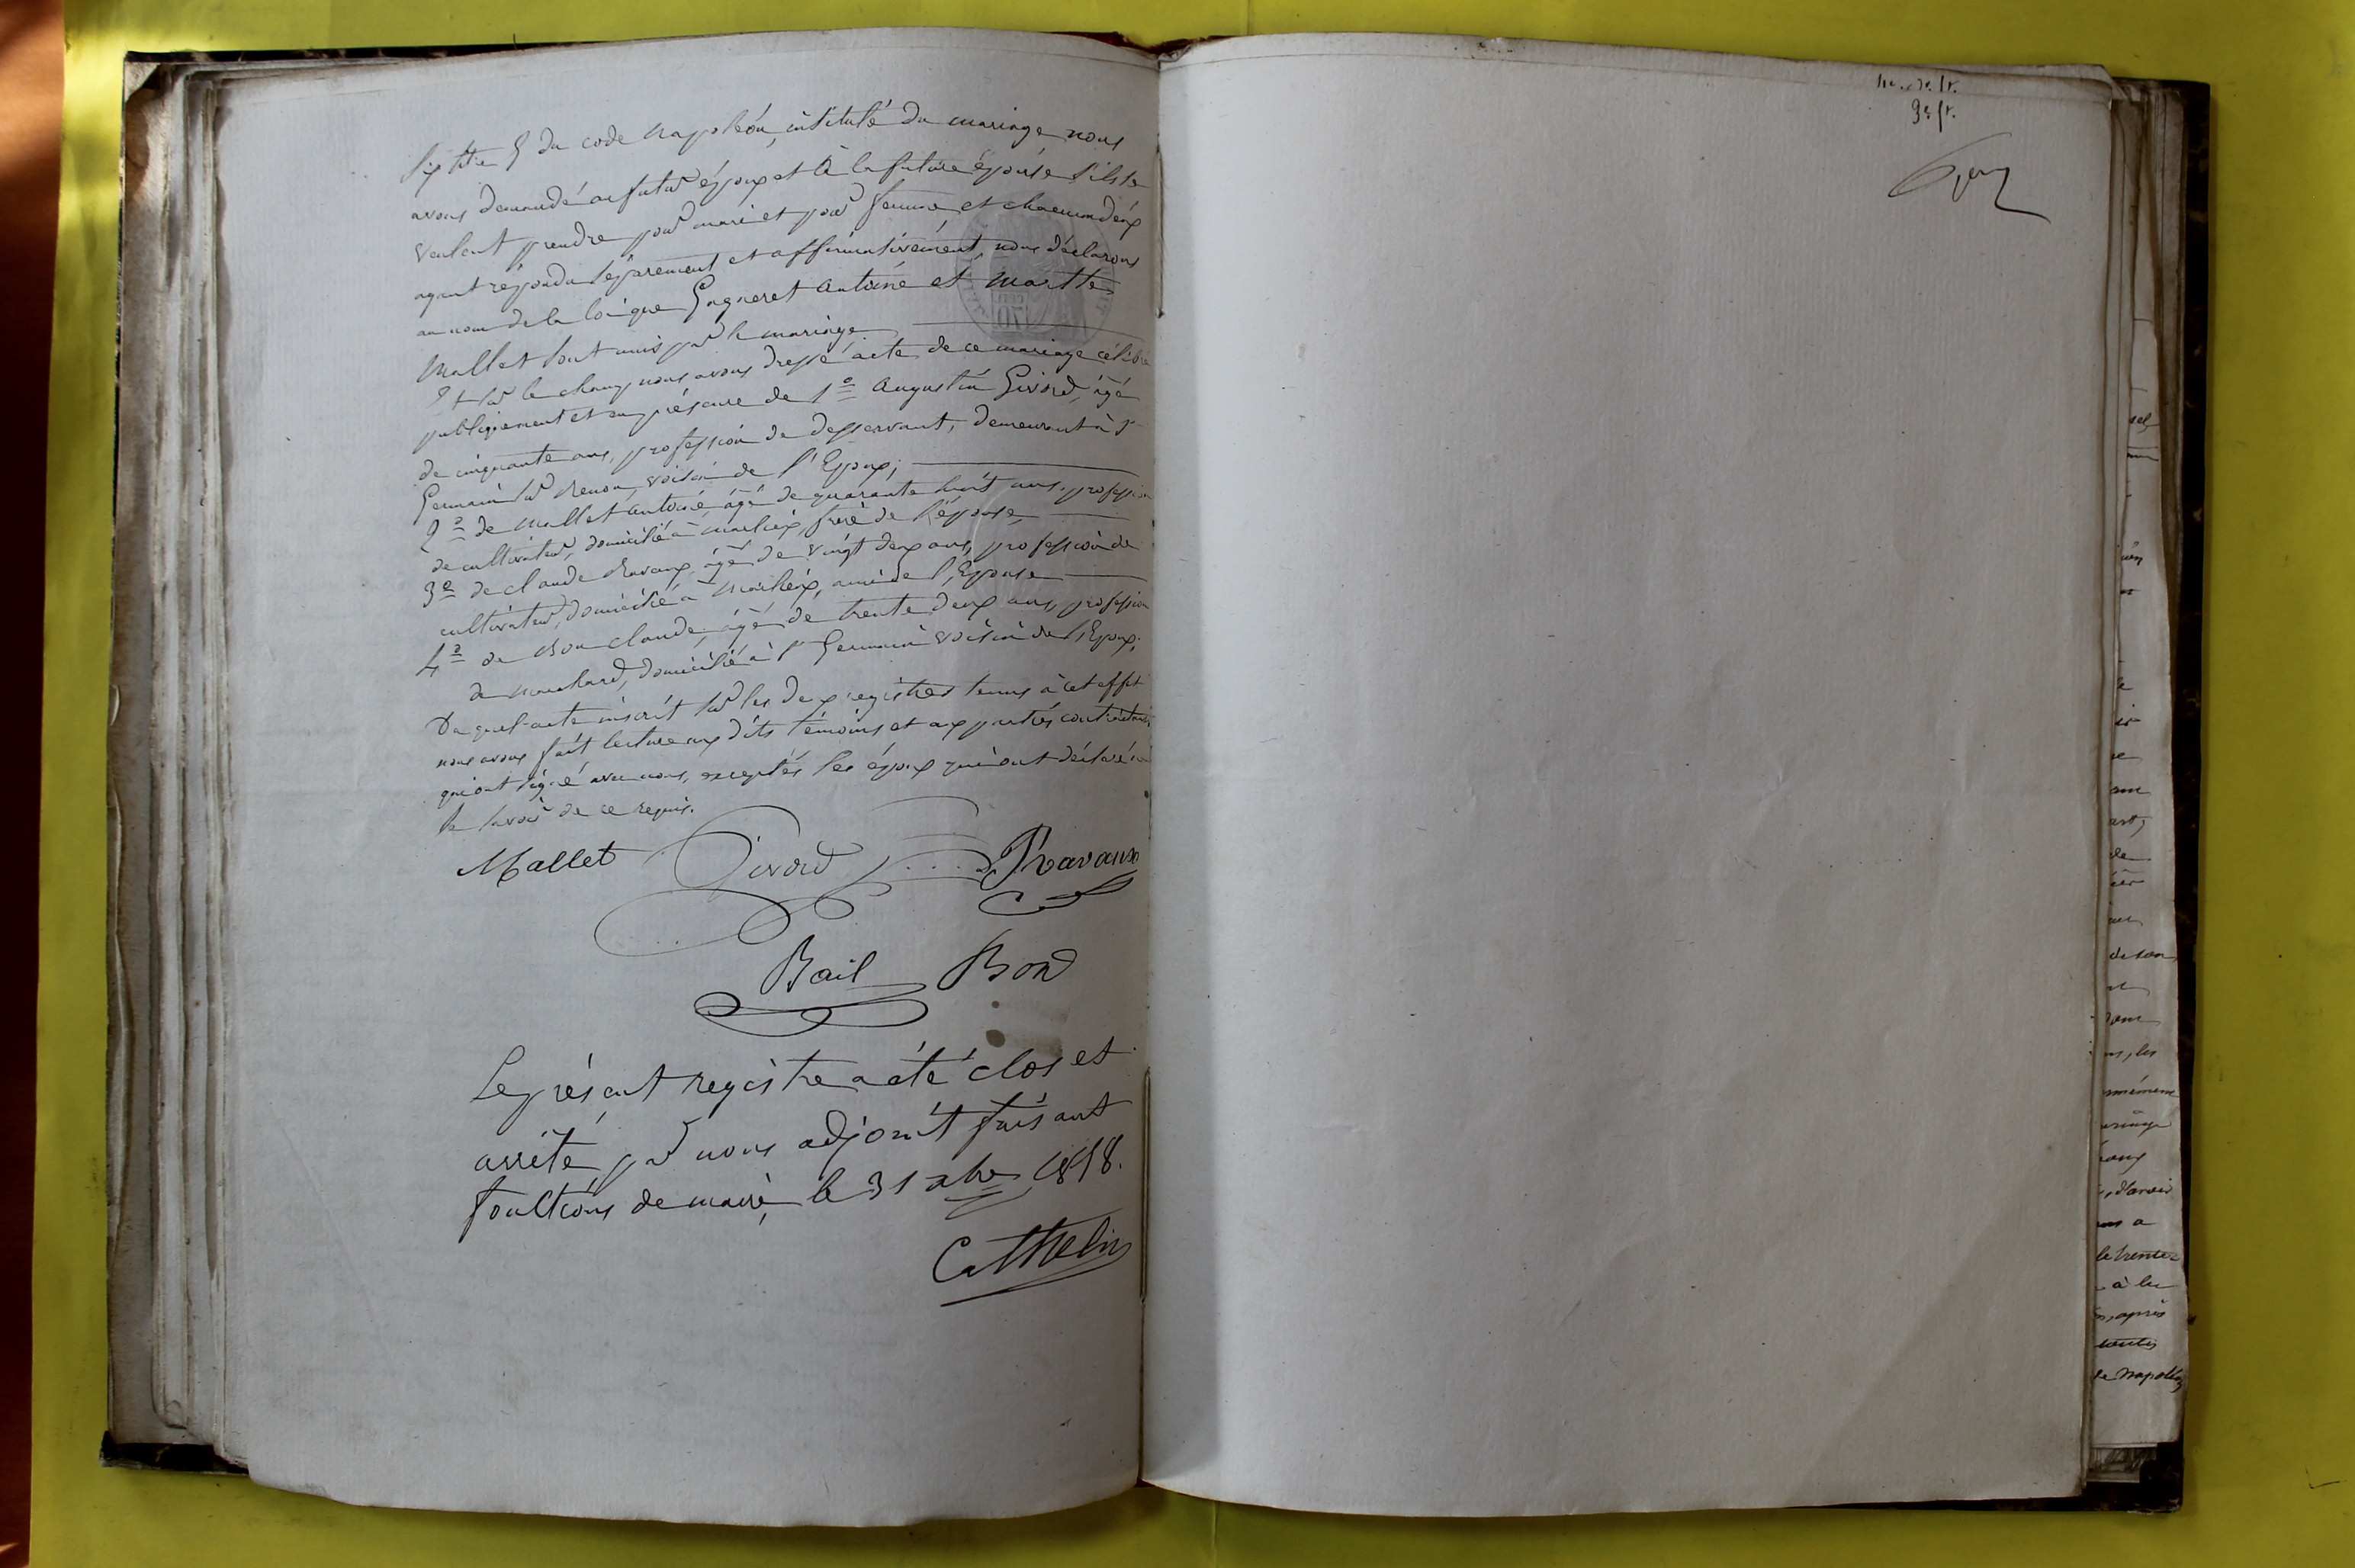 du code Napoléon, intitulé du mariage nous
avons demandé au futur époux et à la future épouse s'ils se
veulent prendre pour mari et pour femme et chacun d'eux
ayant répondu séparement et affirmativement, nous déclarons
au nom de la loi que Gagneret Antoine et Marthe
Mallet sont unis par le mariage
Et sur le champ nous avons dressé acte de ce mariage célébré
publiquement et en présence de 1º Augustin Givord, âgé
de cinquante ans, profession de desservant, demeurant à St
Germain sur Renon, voisin de l'Epoux;
2º de Mallet Antoine, âgé de quarante huit ans, profession
de cultivateur, domicilié à Marlieux, frère de l'épouse,
3º de Claude Ravaux, âgé de vingt deux ans, profession de
cultivateur, domicilié à Marlieux, ami de l'Epouse
4º de Bon Claude, âgé de trente deux ans, profession
de marchand, domicilié à St Germain voisin de l'Epoux.
Duquel acte inscrit sur les deux registres tenus à cet effet
nous avons fait lecture aux dits témoins et aux parties contractantes
qui ont signé avec nous, exceptés les époux qui ont déclaré ne
le savoir de ce requis.
Mallet Givord Ravaux
Bail Bon
Le présent registre a été clos et
arrêté par nous adjoint faisant
fonctions de maire, le 31 xbre 1858.
Cathelin